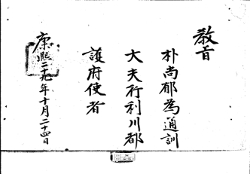 教旨
朴尚郁為通訓
大夫行利川都
護府使者
康熙二十九年十月二十四日